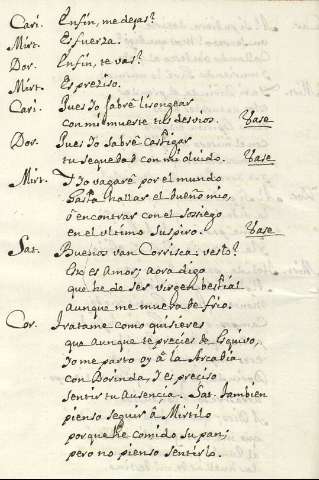 Cari. Enfin, me dejas?
Mirt. Es fuerza.
Dor. Enfin, te vas?
Mirt. Es preziso.
Cari. Pues Io sabrè lisongear
con mi muerte tus desvios. Vase
Dor. Pues Io sabrè castigar
tu sequedad con mi oluido. Vase
Mirt. Y Io vagarè por el mundo
hasta hallar el dueño mio,
ô encontrar con el sossiego
en el vltimo suspiro. Vase
Sat. Buenos van Corrisca: vesto?
Eso es Amor; aora digo
que he de ser virgen bestial
aunque me mueva de frio.
Cor. Tratame como quisieres
que aunque te precies de Esquivo,
Io me parto oy â la Arcadia
con Dorinda, Y es preciso
sentir tu ausencia. Sat. Tambien
pienso seguir â Mirtilo
porque he comido su pan;
pero no pienso sentirlo.